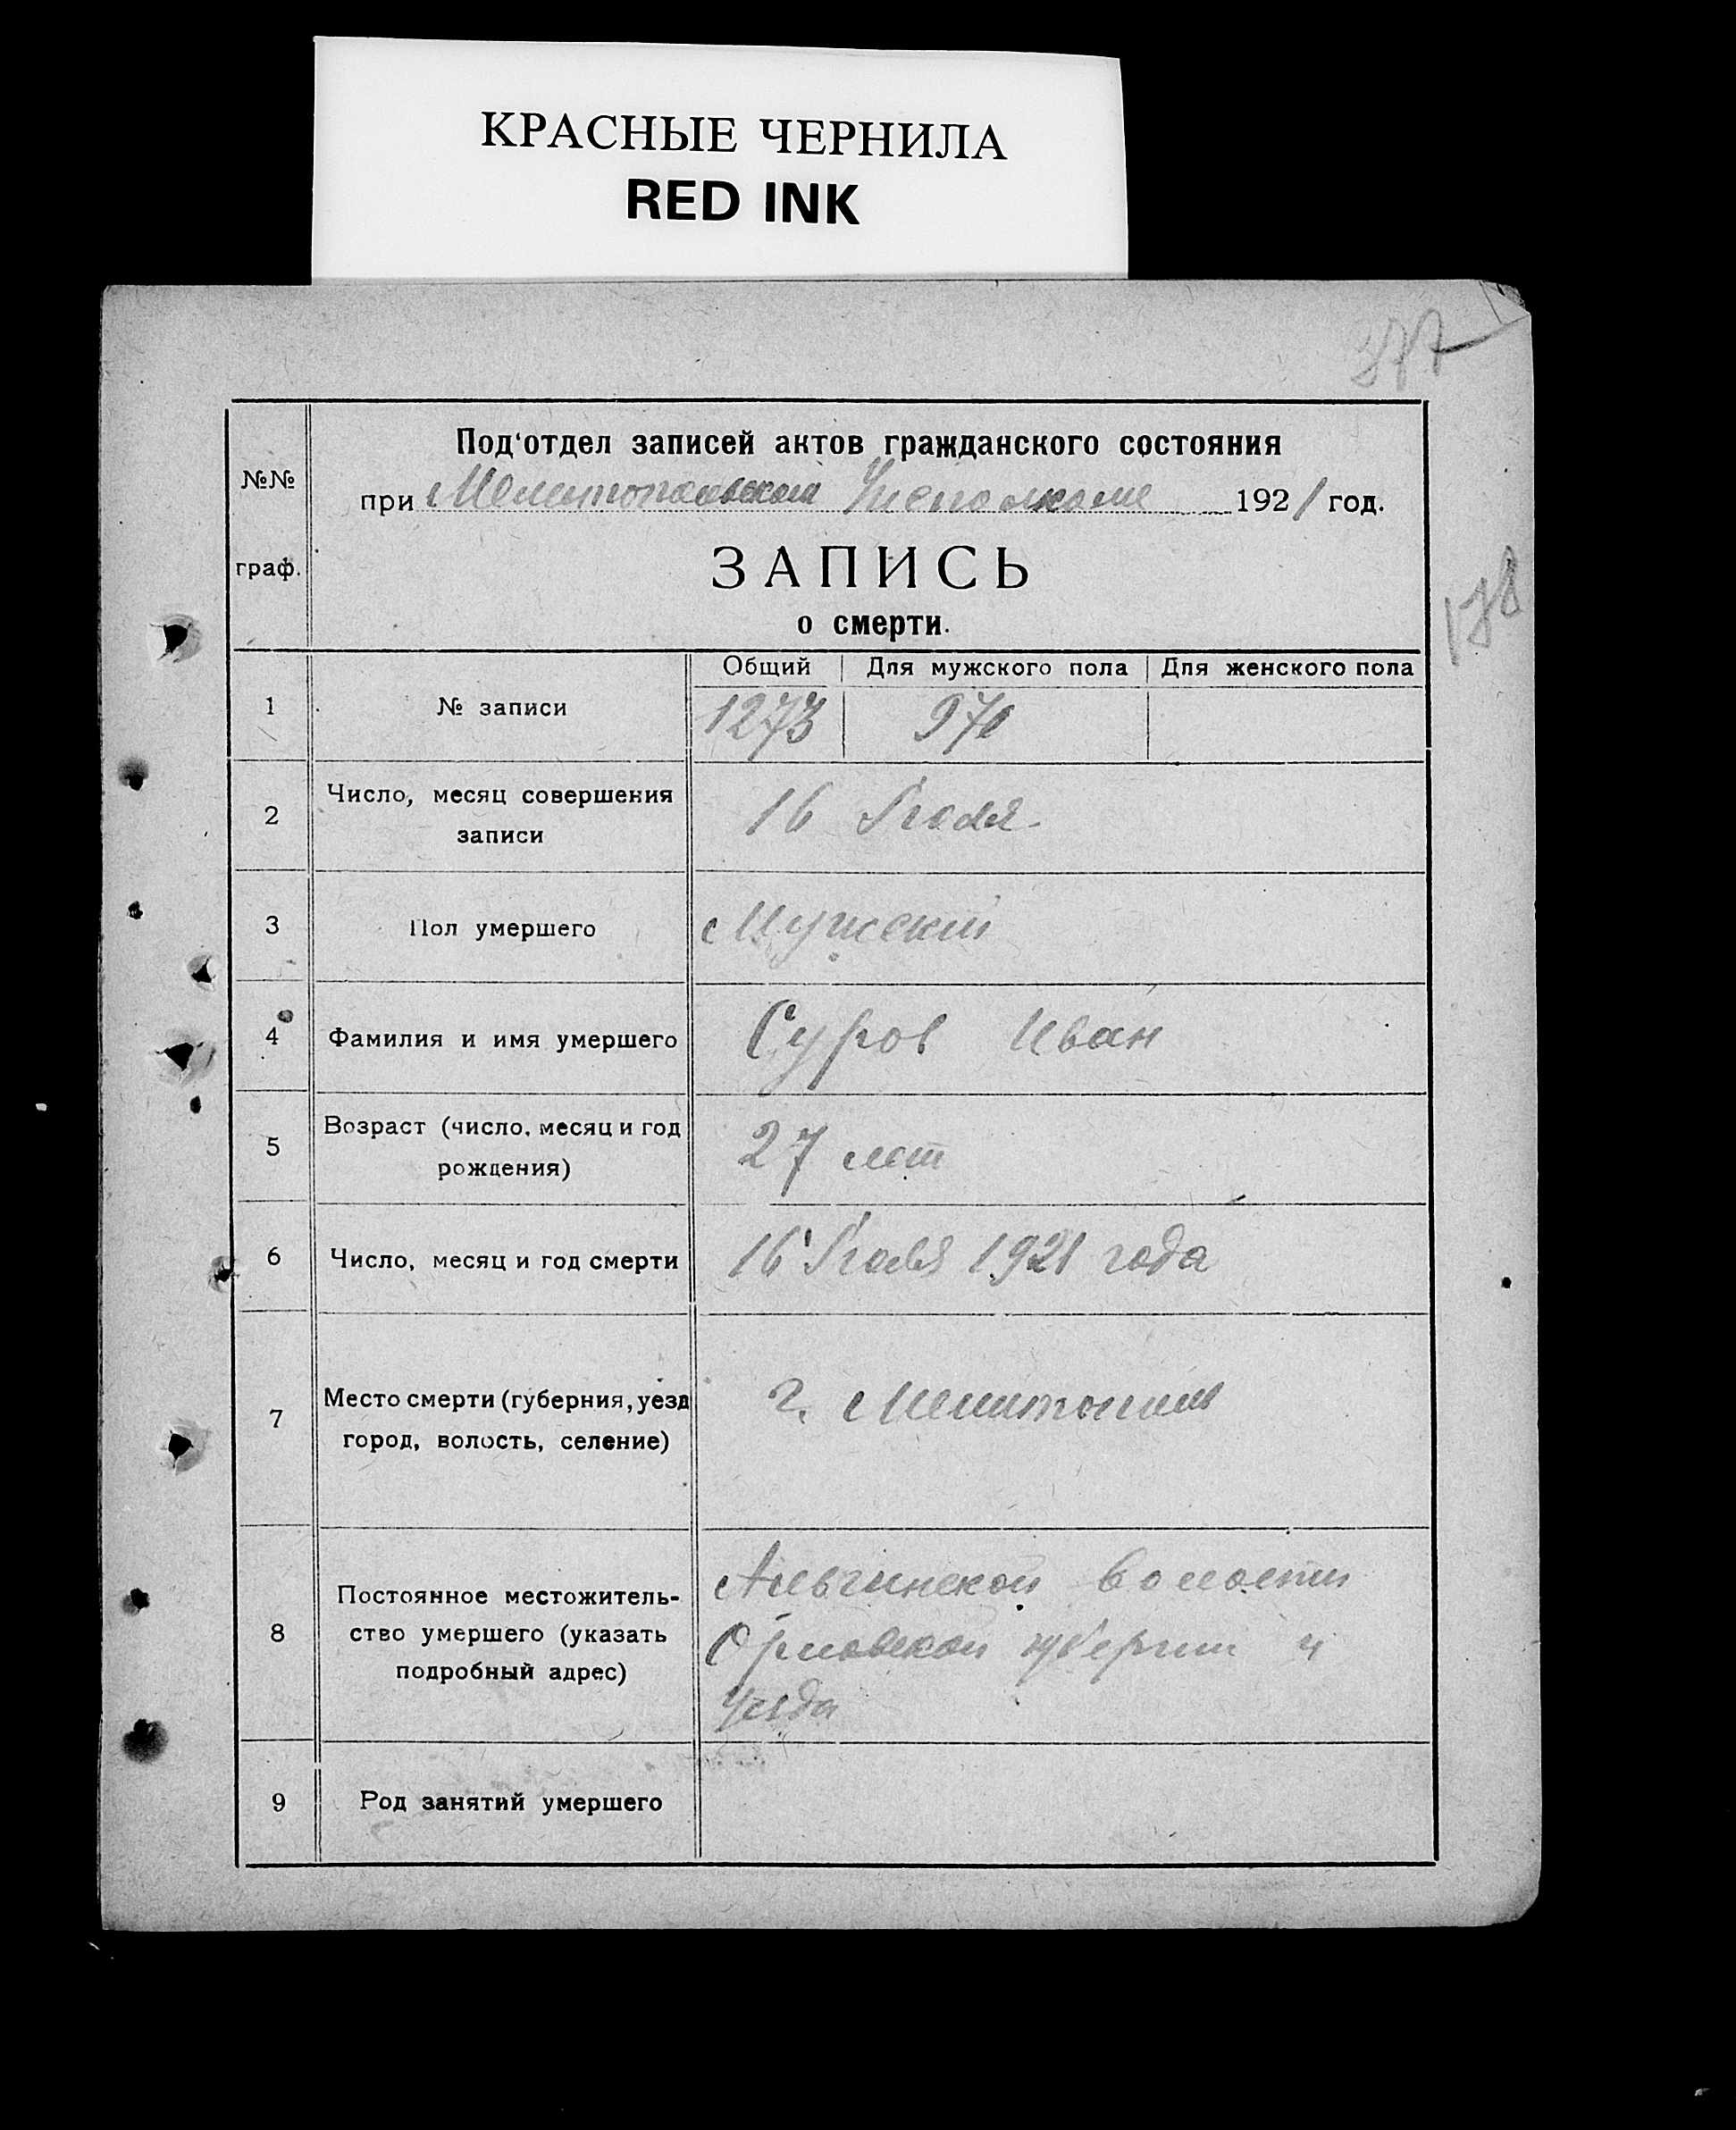 КРАСНЫЕ ЧЕРНИЛА
RED INK
377
№№
граф.
Под'отдел записей актов гражданского состояния
при Мелитопольском Уисполкоме 1921 год.
ЗАПИСЬ
о смерти.
178
Общий Для мужского пола Для женского пола
1 № записи 1273 970
2 Число, месяц совершения
записи
16 Июля
3 Пол умершего Мужский
4 Фамилия и имя умершего Суров Иван
5 Возраст (число, месяц и год
рождения)
27 лет
6 Число, месяц и год смерти 16 Июля 1921 года
7 Место смерти (губерния, уезд
город, волость, селение)
г. Мелитополь
8 Постоянное местожитель-
ство умершего (указать
подробный адрес)
волости
Орловской губернии и
уезда
9 Род занятий умершего